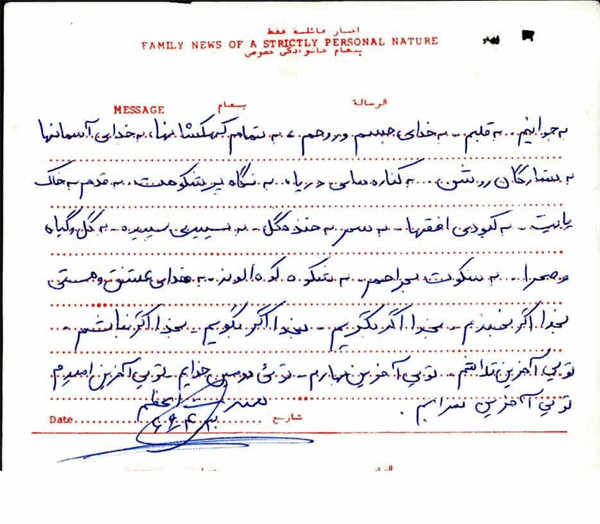 اخبار عائلية فقط
FAMILY NEWS OF A STRICTLY PERSONAL NATURE
پیغام خانوادگی خصوصی
MESSAGE پیغام الرسالة
به جوانیم .. به قلبم - به خدای جسم و روحم، به تمام کهکشانها، به خدای آسمانها
به ستارگان روشن .. به کناره های دریا، به نگاه پر شکوهت، به قدم به خاک
پایت - به کبودی افقها - به سحر به خنده گل - به سپیدی سپیده - به گل و گیاه
و صحرا - به سکوت - به شکوه کوه الوند - به خدای عشق و هستی
بخدا اگر بخندم - بخدا اگر نگریم - بخدا اگر بگویم - بخدا اگر نباشم -
تویی آخرین - تویی آخرین بهارم - تویی دومین خدایم - تویی آخرین امیدم
تویی آخرین سرابم .
Date تاریخ